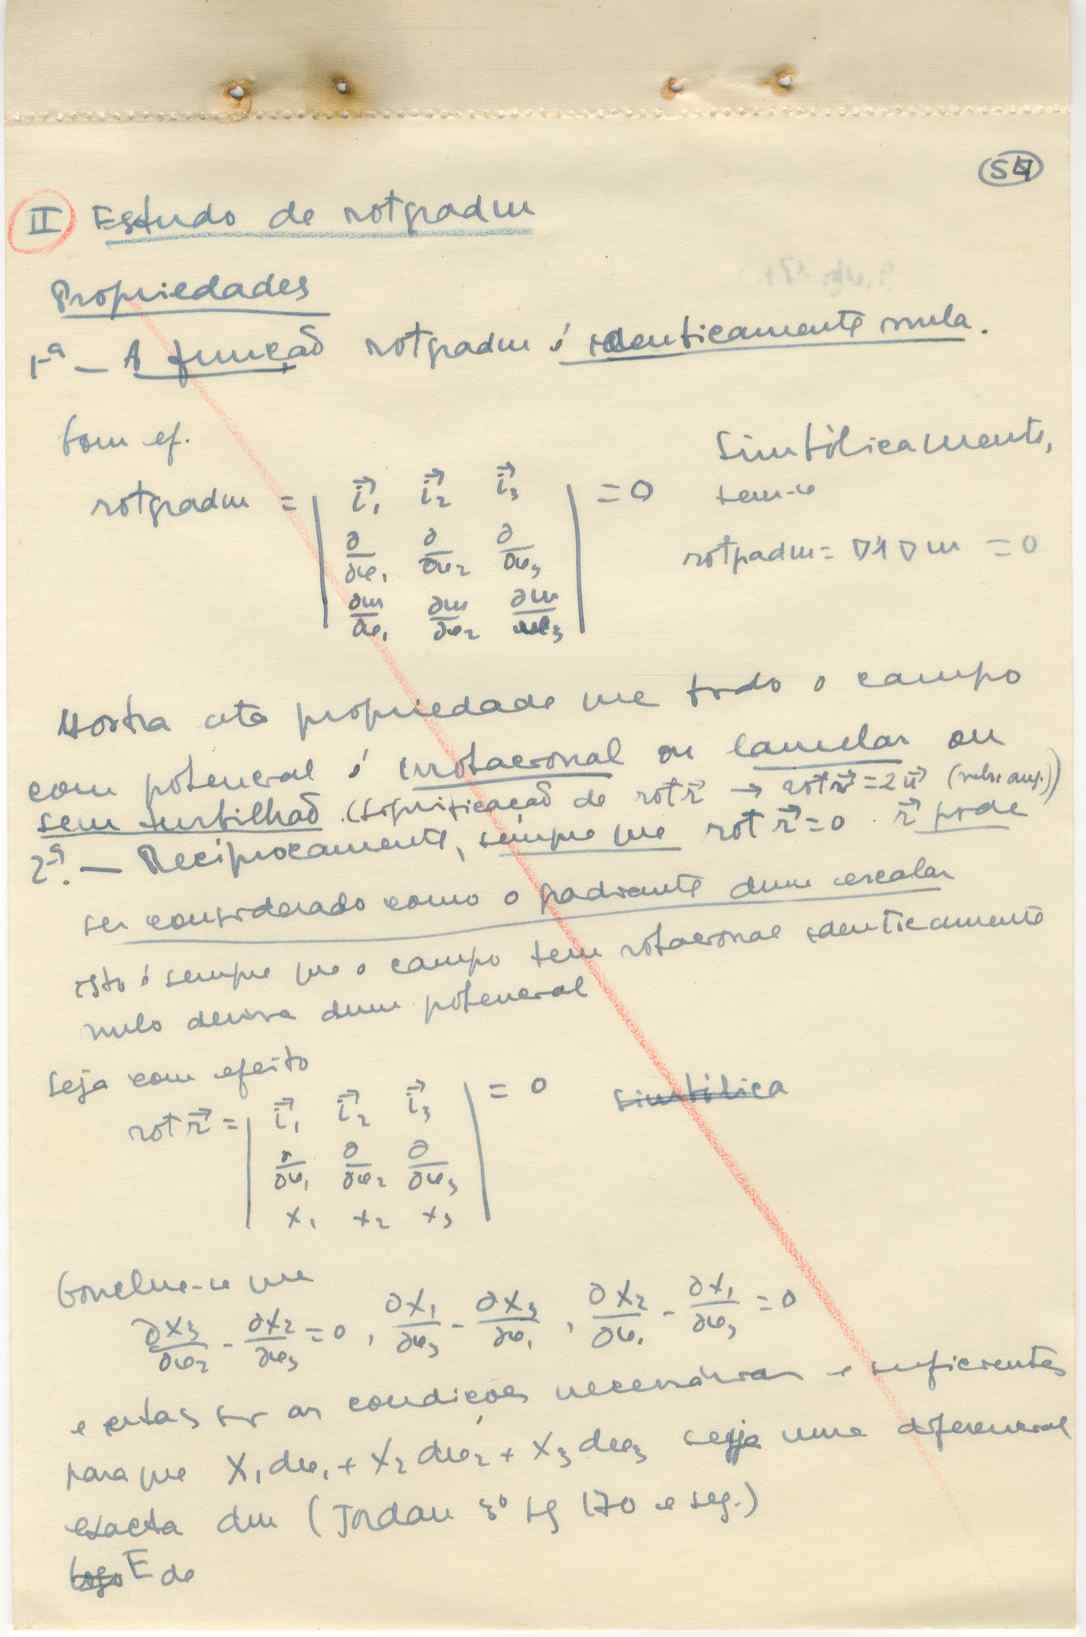 54
II Estudo de rotgradm
Propriedades
1ª — A função rotgradm é identicamente nula.
Com ef.
Simbòlicamente,
tem-se
rotgradm = | i⃗₁ i⃗₂ i⃗₃ | = 0
| ∂/∂x₁ ∂/∂x₂ ∂/∂x₃ |
| ∂m/∂x₁ ∂m/∂x₂ ∂m/∂x₃ |
rotgradm = ∇∧∇m = 0
Mostra esta propriedade que todo o campo
com potencial é irrotacional ou lamelar ou
sem turbilhão. (Significação de rot r⃗ → rot r⃗ = 2 u⃗
2ª. — Reciprocamente, sempre que rot r⃗ = 0 r⃗ pode
ser considerado como o gradiente dum escalar
isto é sempre que o campo tem rotacional identicamente
nulo deriva dum potencial
Seja com efeito
rot r⃗ = | i⃗₁ i⃗₂ i⃗₃ | = 0
| ∂/∂x₁ ∂/∂x₂ ∂/∂x₃ |
| X₁ X₂ X₃ |
simbólica
Conclue-se que
∂X₃/∂x₂ - ∂X₂/∂x₃ = 0, ∂X₁/∂x₃ - ∂X₃/∂x₁, ∂X₂/∂x₁ - ∂X₁/∂x₃ = 0
e estas são as condições necessárias e suficientes
para que X₁dx₁ + X₂dx₂ + X₃dx₃ seja uma diferencial
exacta dm (Jordan 3º 170 e seg.)
Logo E de